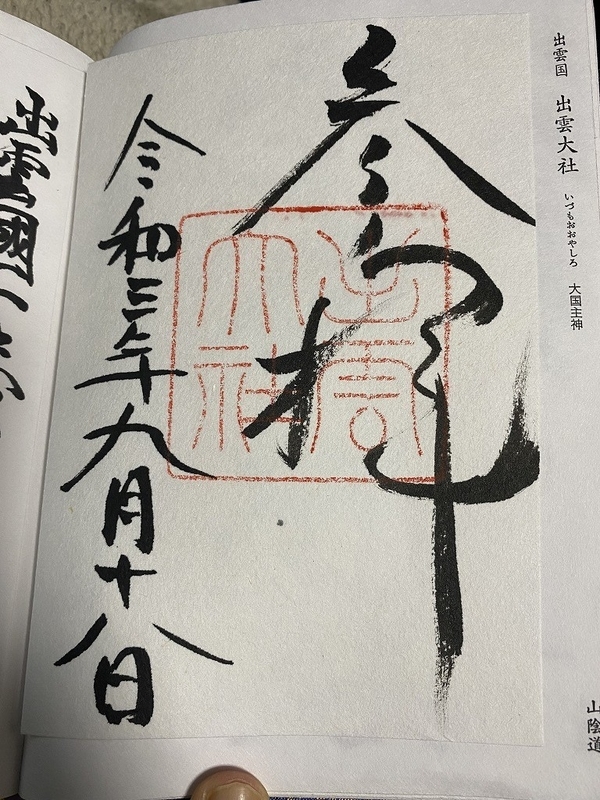 出雲国 出雲大社 いづもおおやしろ 大国主神
山陰道
参拝
出雲
大社
令和三年九月十八日
出雲國一